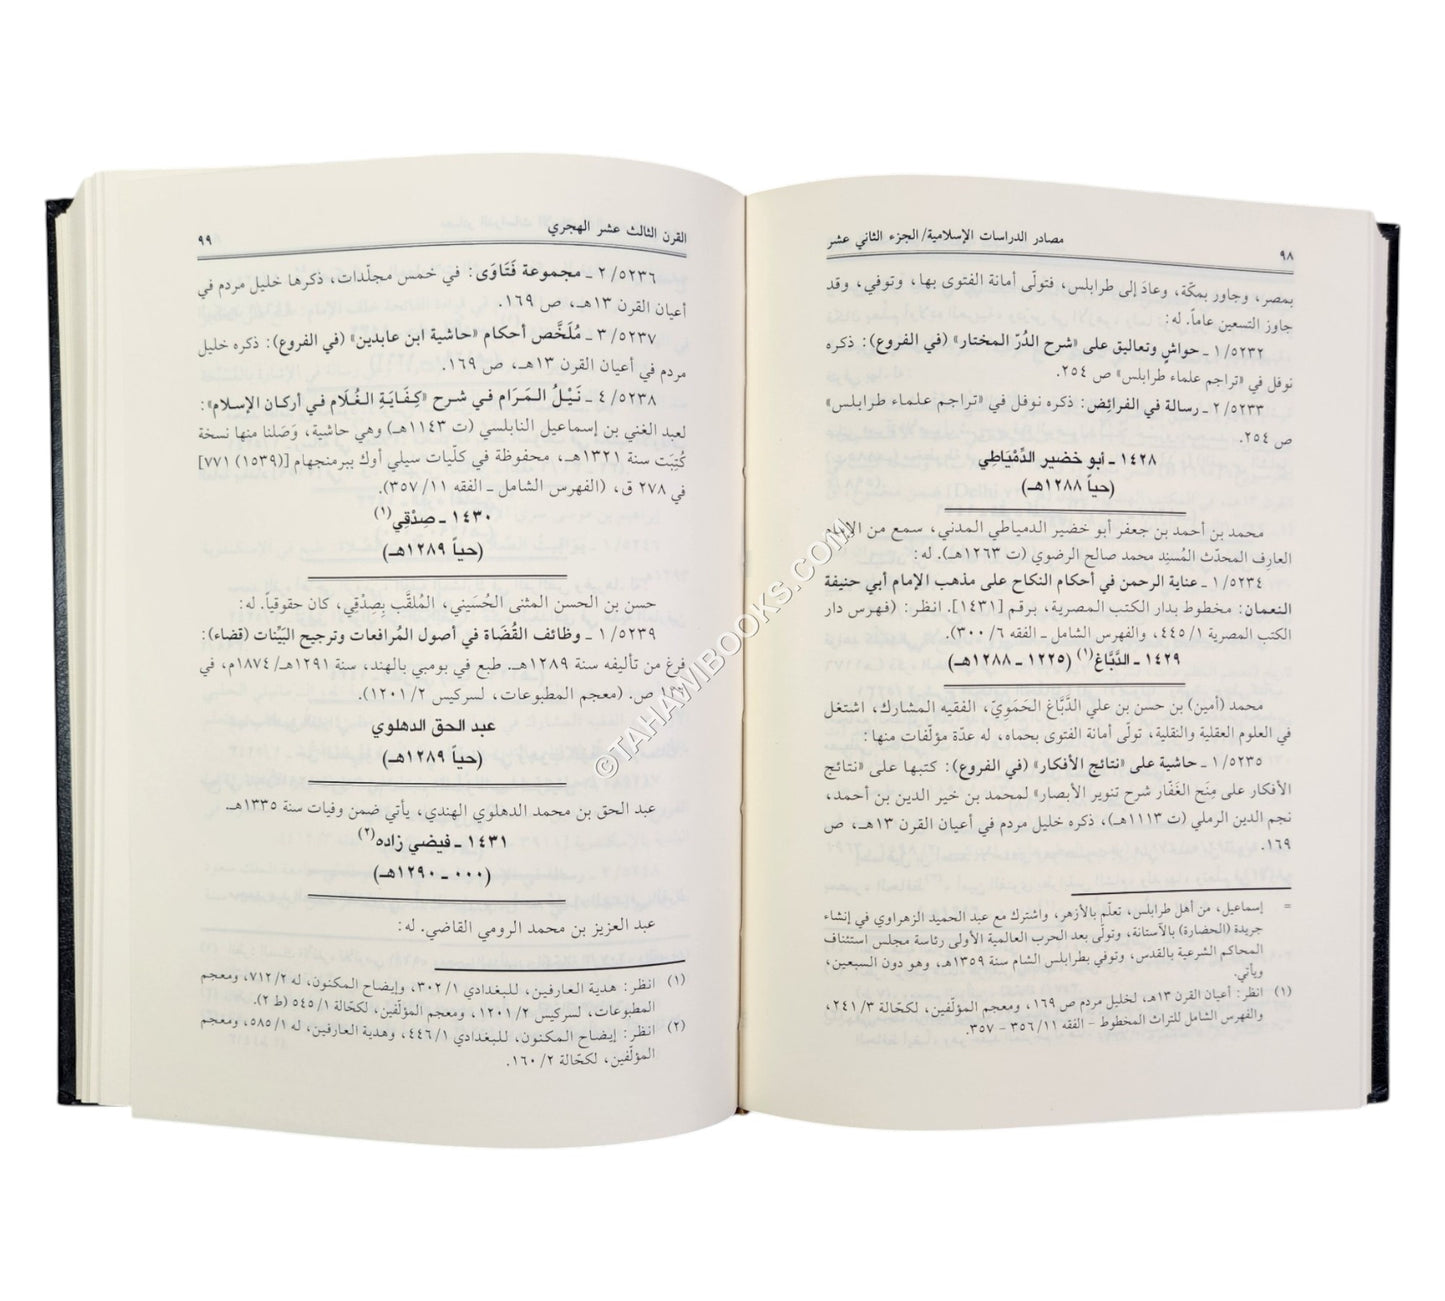 مصادر الدراسات الإسلامية/الجزء الثاني عشر
٩٨
بمصر، وجاور بمكّة، وعادَ إلى طرابلس، فتولّى أمانة الفتوى بها، وتوفي، وقد
جاوز التسعين عاماً. له:
١/٥٢٣٢ ـ حواشٍ وتعاليق على «شرح الدُرّ المختار» (في الفروع): ذكره
نوفل في «تراجم علماء طرابلس» ص ٢٥٤.
٢/٥٢٣٣ ـ رسالة في الفرائِض: ذكره نوفل في «تراجم علماء طرابلس»
ص ٢٥٤.
١٤٢٨ ـ أبو خضير الدِّمْيَاطي
(حياً ١٢٨٨هـ)
محمد بن أحمد بن جعفر أبو خضير الدمياطي المدني، سمع من الإمام
العارف المحدّث المُسنِد محمد صالح الرضوي (ت ١٢٦٣هـ). له:
١/٥٢٣٤ ـ عناية الرحمن في أحكام النكاح على مذهب الإمام أبي حنيفة
النعمان: مخطوط بدار الكتب المصرية، برقم [١٤٣١]. انظر: (فهرس دار
الكتب المصرية ١/ ٤٤٥، والفهرس الشامل ـ الفقه ٦/ ٣٠٠).
١٤٢٩ ـ الدَّبَّاغ(١) (١٢٢٥ ـ ١٢٨٨هـ)
محمد (أمين) بن حسن بن علي الدَّبَّاغ الحَمَوِيّ، الفقيه المشارك، اشتغل
في العلوم العقلية والنقلية، تولّى أمانة الفتوى بحماه، له عدّة مؤلّفات منها:
١/٥٢٣٥ ـ حاشية على «نتائج الأفكار» (في الفروع): كتبها على «نتائج
الأفكار على مِنَح الغَفّار شرح تنوير الأبصار» لمحمد بن خير الدين بن أحمد،
نجم الدين الرملي (ت ١١١٣هـ)، ذكره خليل مردم في أعيان القرن ١٣هـ، ص
١٦٩.
= إسماعيل، من أهل طرابلس، تعلّم بالأزهر، واشترك مع عبد الحميد الزهراوي في إنشاء
جريدة (الحضارة) بالآستانة، وتولّى بعد الحرب العالمية الأولى رئاسة مجلس استئناف
المحاكم الشرعية بالقدس، وتوفي بطرابلس الشام سنة ١٣٥٩هـ، وهو دون السبعين،
ويأتي.
(١) انظر: أعيان القرن ١٣هـ، لخليل مردم ص ١٦٩، ومعجم المؤلّفين، لكحّالة ٣/ ٢٤١،
والفهرس الشامل للتراث المخطوط - الفقه ١١/ ٣٥٦ - ٣٥٧.
القرن الثالث عشر الهجري
٩٩
٢/٥٢٣٦ ـ مجموعة فَتَاوَى: في خمس مجلّدات، ذكرها خليل مردم في
أعيان القرن ١٣هـ، ص ١٦٩.
٣/٥٢٣٧ ـ مُلَخَّص أحكام «حاشية ابن عابدين» (في الفروع): ذكره خليل
مردم في أعيان القرن ١٣هـ، ص ١٦٩.
٤/٥٢٣٨ ـ نَيْلُ المَرَام في شرح «كِفَايَةِ الغُلَام في أركان الإسلام»:
لعبد الغني بن إسماعيل النابلسي (ت ١١٤٣هـ) وهي حاشية، وَصَلنا منها نسخة
كُتِبَت سنة ١٣٢١هـ، محفوظة في كلّيات سيلي أوك ببرمنجهام [(١٥٣٩) ٧٧١]
في ٢٧٨ ق، (الفهرس الشامل ـ الفقه ١١/ ٣٥٧).
١٤٣٠ ـ صِدْقِي(١)
(حياً ١٢٨٩هـ)
حسن بن الحسن المثنى الحُسَيني، المُلقَّب بِصِدْقِي، كان حقوقياً. له:
١/٥٢٣٩ ـ وظائف القُضَاة في أصول المُرافعات وترجيح البَيِّنات (قضاء):
فرغ من تأليفه سنة ١٢٨٩هـ. طبع في بومبي بالهند، سنة ١٢٩١هـ/ ١٨٧٤م، في
ص. (معجم المطبوعات، لسركيس ٢/ ١٢٠١).
عبد الحق الدهلوي
(حياً ١٢٨٩هـ)
عبد الحق بن محمد الدهلوي الهندي، يأتي ضمن وفيات سنة ١٣٣٥هـ.
١٤٣١ ـ فيضي زاده(٢)
(٠٠٠ ـ ١٢٩٠هـ)
عبد العزيز بن محمد الرومي القاضي. له:
(١) انظر: هدية العارفين، للبغدادي ١/ ٣٠٢، وإيضاح المكنون، له ٢/ ٧١٢، ومعجم
المطبوعات، لسركيس ٢/ ١٢٠١، ومعجم المؤلّفين، لكحّالة ١/ ٥٤٥ (ط ٢).
(٢) انظر: إيضاح المكنون، للبغدادي ١/ ٤٤٦، وهدية العارفين، له ١/ ٥٨٥، ومعجم
المؤلّفين، لكحّالة ٢/ ١٦٠.
©TAHAWIBOOKS.COM